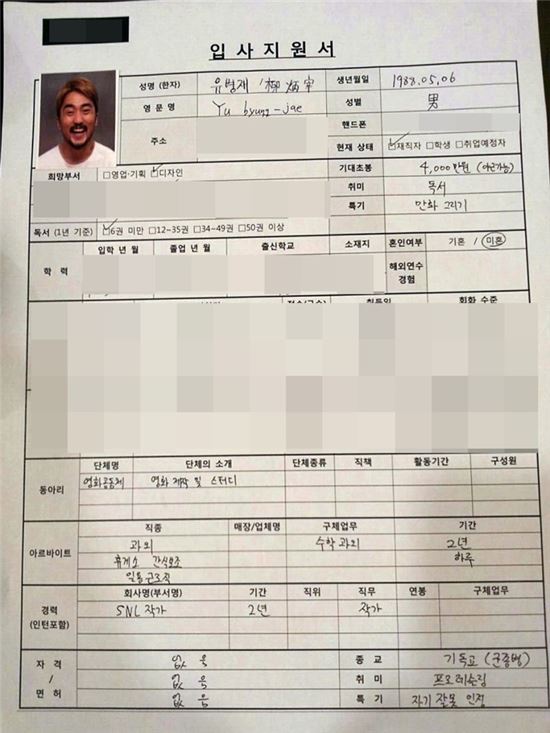 입사지원서
성명 (한자) 유병재 / 柳炳宰 생년월일 1988.05.06
영 문 명 Yu byung-jae 성별 男
주소 핸드폰
현재 상태 ☑재직자 □학생 □취업예정자
희망부서 □영업·기획 ☑디자인 기대초봉 4,000만원 (야근가능)
취미 독서
특기 만화 그리기
독서 (1년 기준) ☑6권 미만 □12~35권 □34~49권 □50권 이상
입학 년 월 졸업 년 월 출신학교 소재지 혼인여부 기혼 / 미혼
학 력 해외연수 경험
회화 수준
단체명 단체의 소개 단체종류 직책 활동기간 구성원
동아리 영화공동체 영화 제작 및 스터디
직종 매장/업체명 구체업무 기간
아르바이트 과외 수학 과외 2년
휴게소 간식보조 하루
일용근로직
회사명(부서명) 기간 직위 직무 연봉 구체업무
경력 (인턴포함) SNL 작가 2년 작가
자 격 / 면 허 없 음 종 교 기독교 (군종병)
없 음 취 미 프로레슬링
없 음 특 기 자기 잘못 인정